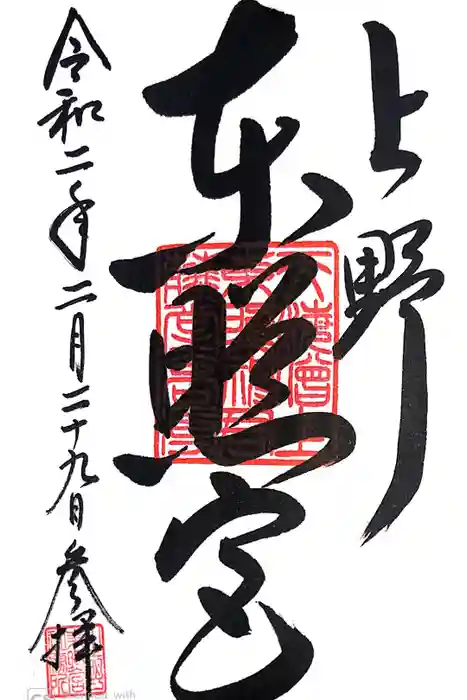 上野
東照宮
令和二年二月二十九日参拝
with